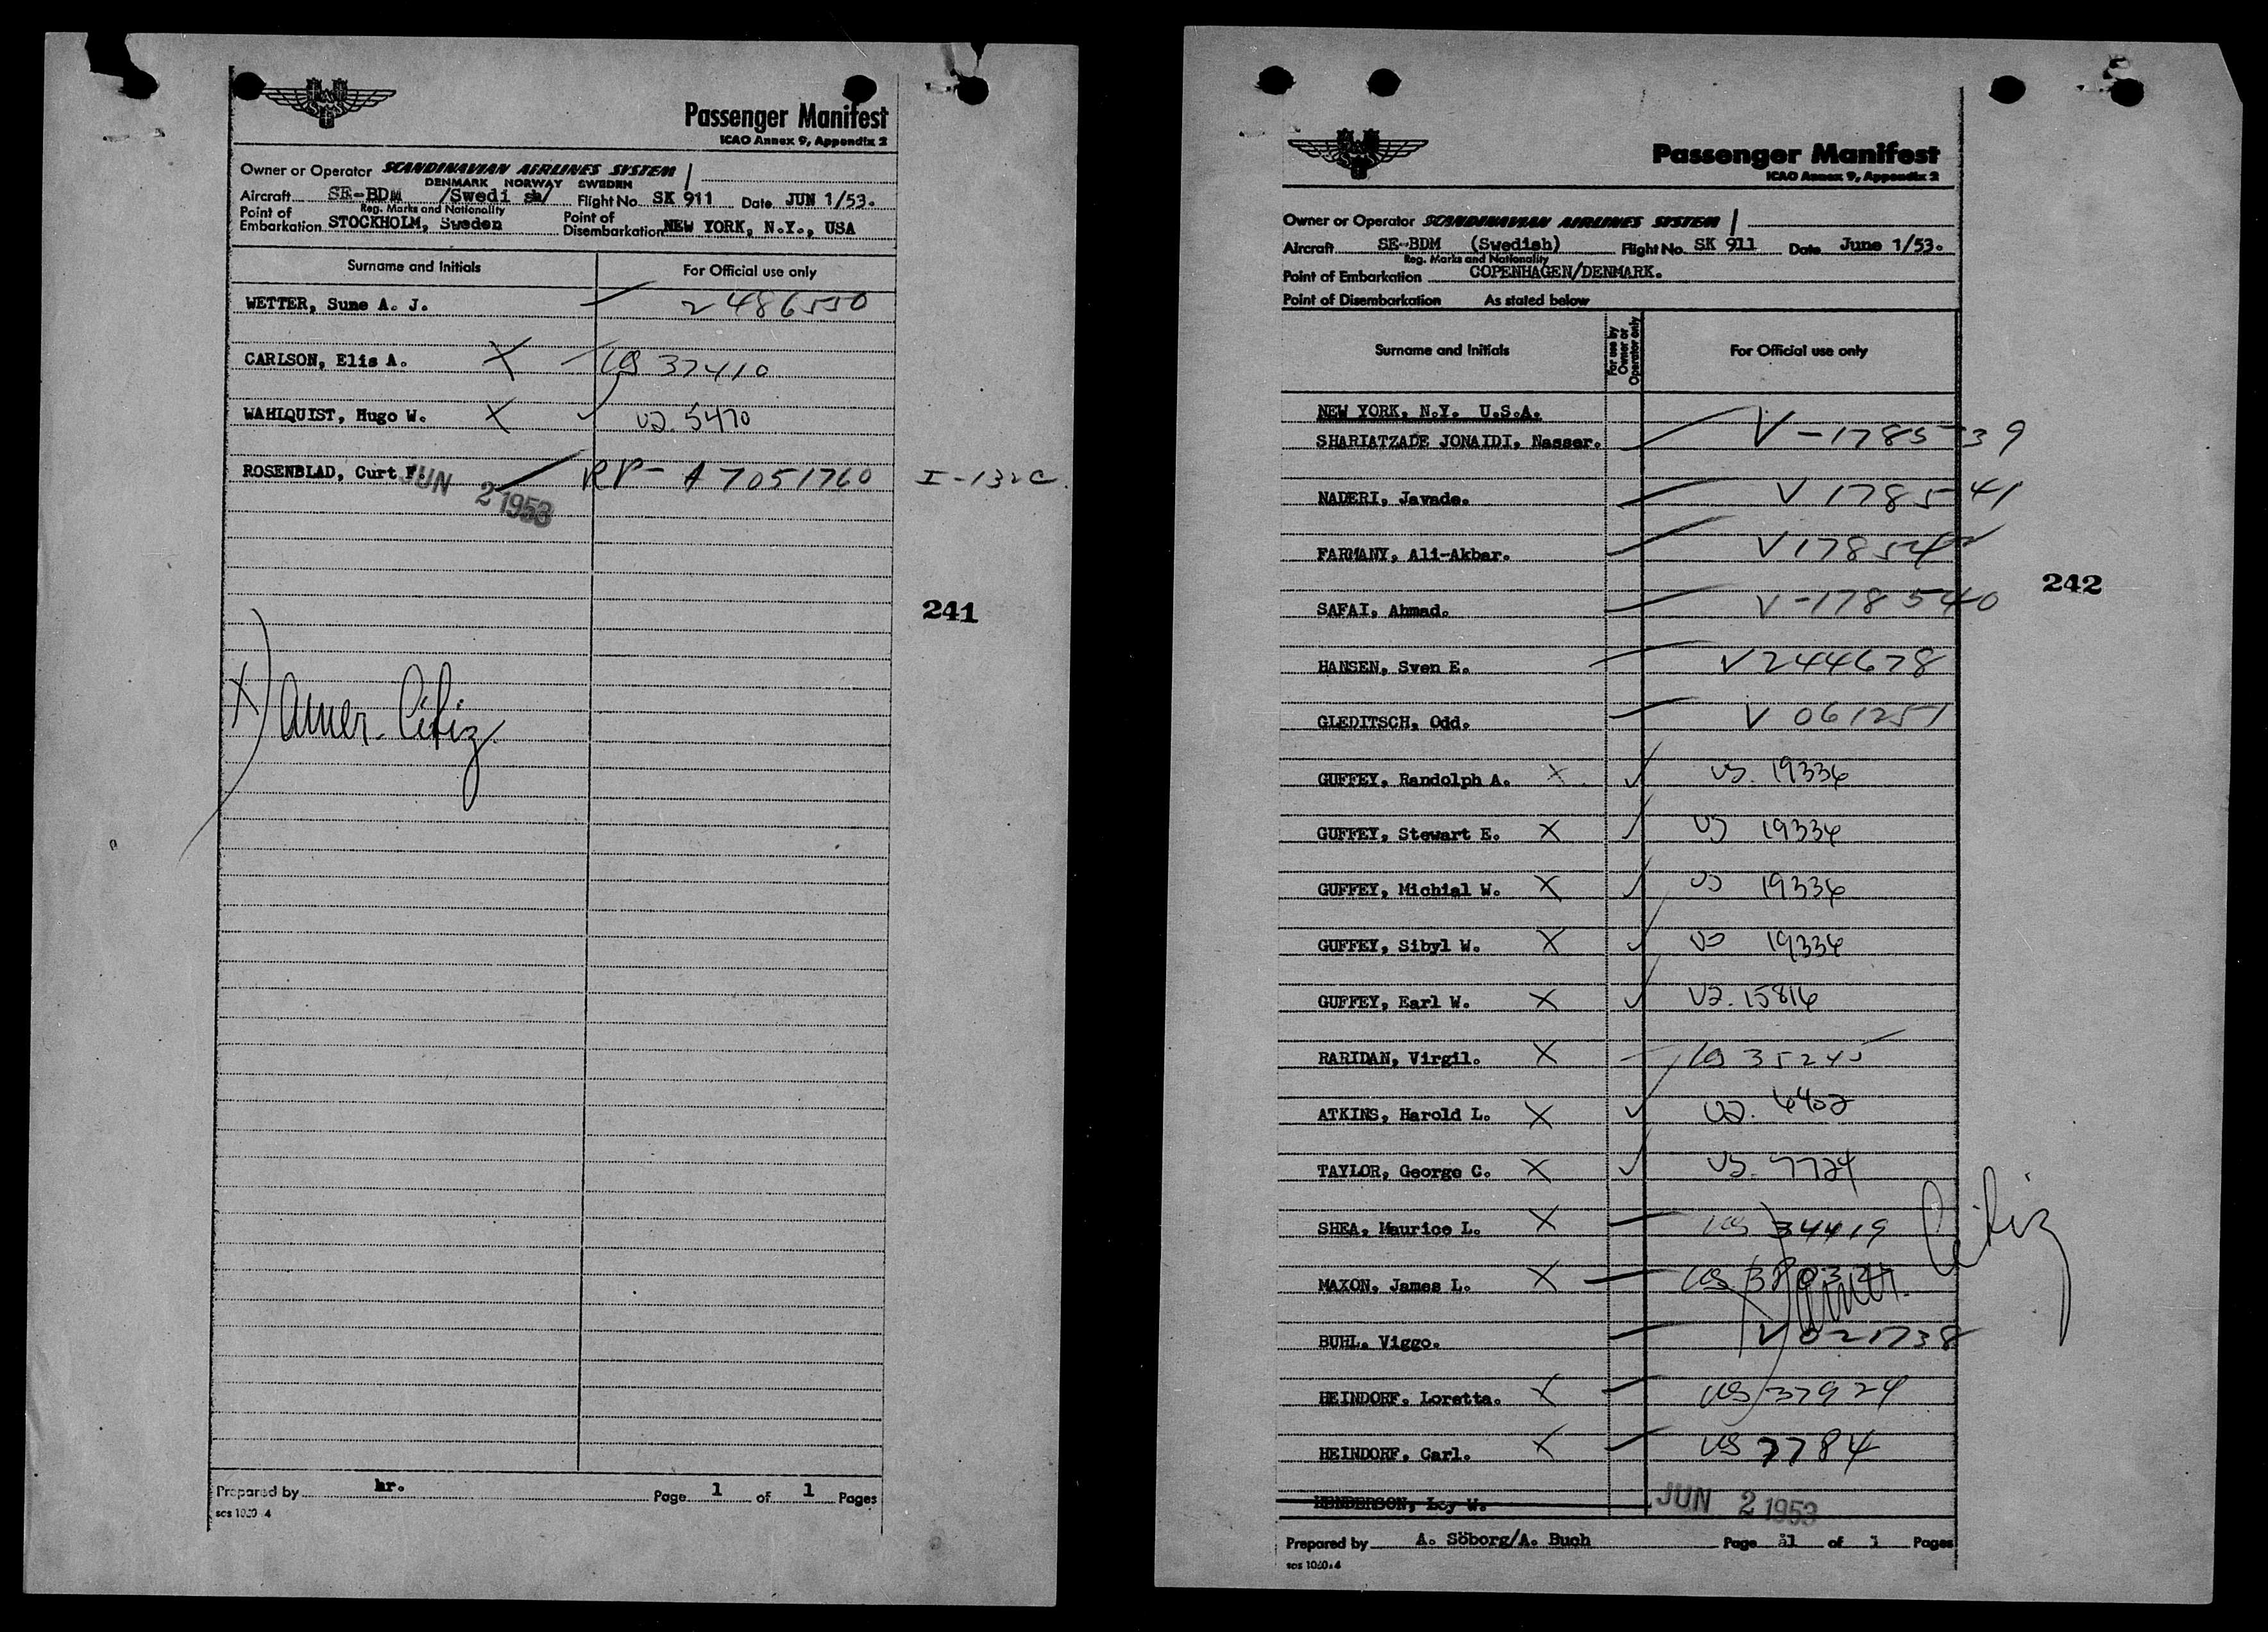 Passenger Manifest
ICAO Annex 9, Appendix 2
Owner or Operator SCANDINAVIAN AIRLINES SYSTEM
DENMARK NORWAY SWEDEN
Aircraft SE-BDM /Swedi sh/ Flight No. SK 911 Date JUN 1/53.
Reg. Marks and Nationality
Point of Embarkation STOCKHOLM, Sweden Point of Disembarkation NEW YORK, N.Y., USA
Surname and Initials For Official use only
WETTER, Sune A. J. 2486550
CARLSON, Elis A. X US 37410
WAHLQUIST, Hugo W. X US. 5470
ROSENBLAD, Curt F. RP- A7051760 I-132c
JUN 2 1953
241
X) Amer. Citiz
Prepared by hr. Page 1 of 1 Pages
scs 1020 4
Passenger Manifest
ICAO Annex 9, Appendix 2
Owner or Operator SCANDINAVIAN AIRLINES SYSTEM
Aircraft SE-BDM (Swedish) Flight No. SK 911 Date June 1/53.
Reg. Marks and Nationality
Point of Embarkation COPENHAGEN/DENMARK.
Point of Disembarkation As stated below
Surname and Initials For use by Owner or Operator only For Official use only
NEW YORK, N.Y. U.S.A.
SHARIATZADE JONAIDI, Nasser. V-1785539
NADERI, Javade. V178541
FARMANY, Ali-Akbar. V178542
SAFAI, Ahmad. V-178540
242
HANSEN, Sven E. V244678
GLEDITSCH, Odd. V 061251
GUFFEY, Randolph A. X US. 19336
GUFFEY, Stewart E. X US 19336
GUFFEY, Michial W. X US 19336
GUFFEY, Sibyl W. X US 19336
GUFFEY, Earl W. X US. 15816
RARIDAN, Virgil. X US 35245
ATKINS, Harold L. X US. 6402
TAYLOR, George C. X US. 7724
SHEA, Maurice L. X US 34419
MAXON, James L. X US
X) Amer. Citiz
BUHL, Viggo. V 021738
HEINDORF, Loretta. X US 37924
HEINDORF, Carl. X US 7784
HENDERSON, Loy W.
JUN 2 1953
Prepared by A. Söborg/A. Buch Page å1 of 1 Pages
scs 1020.4